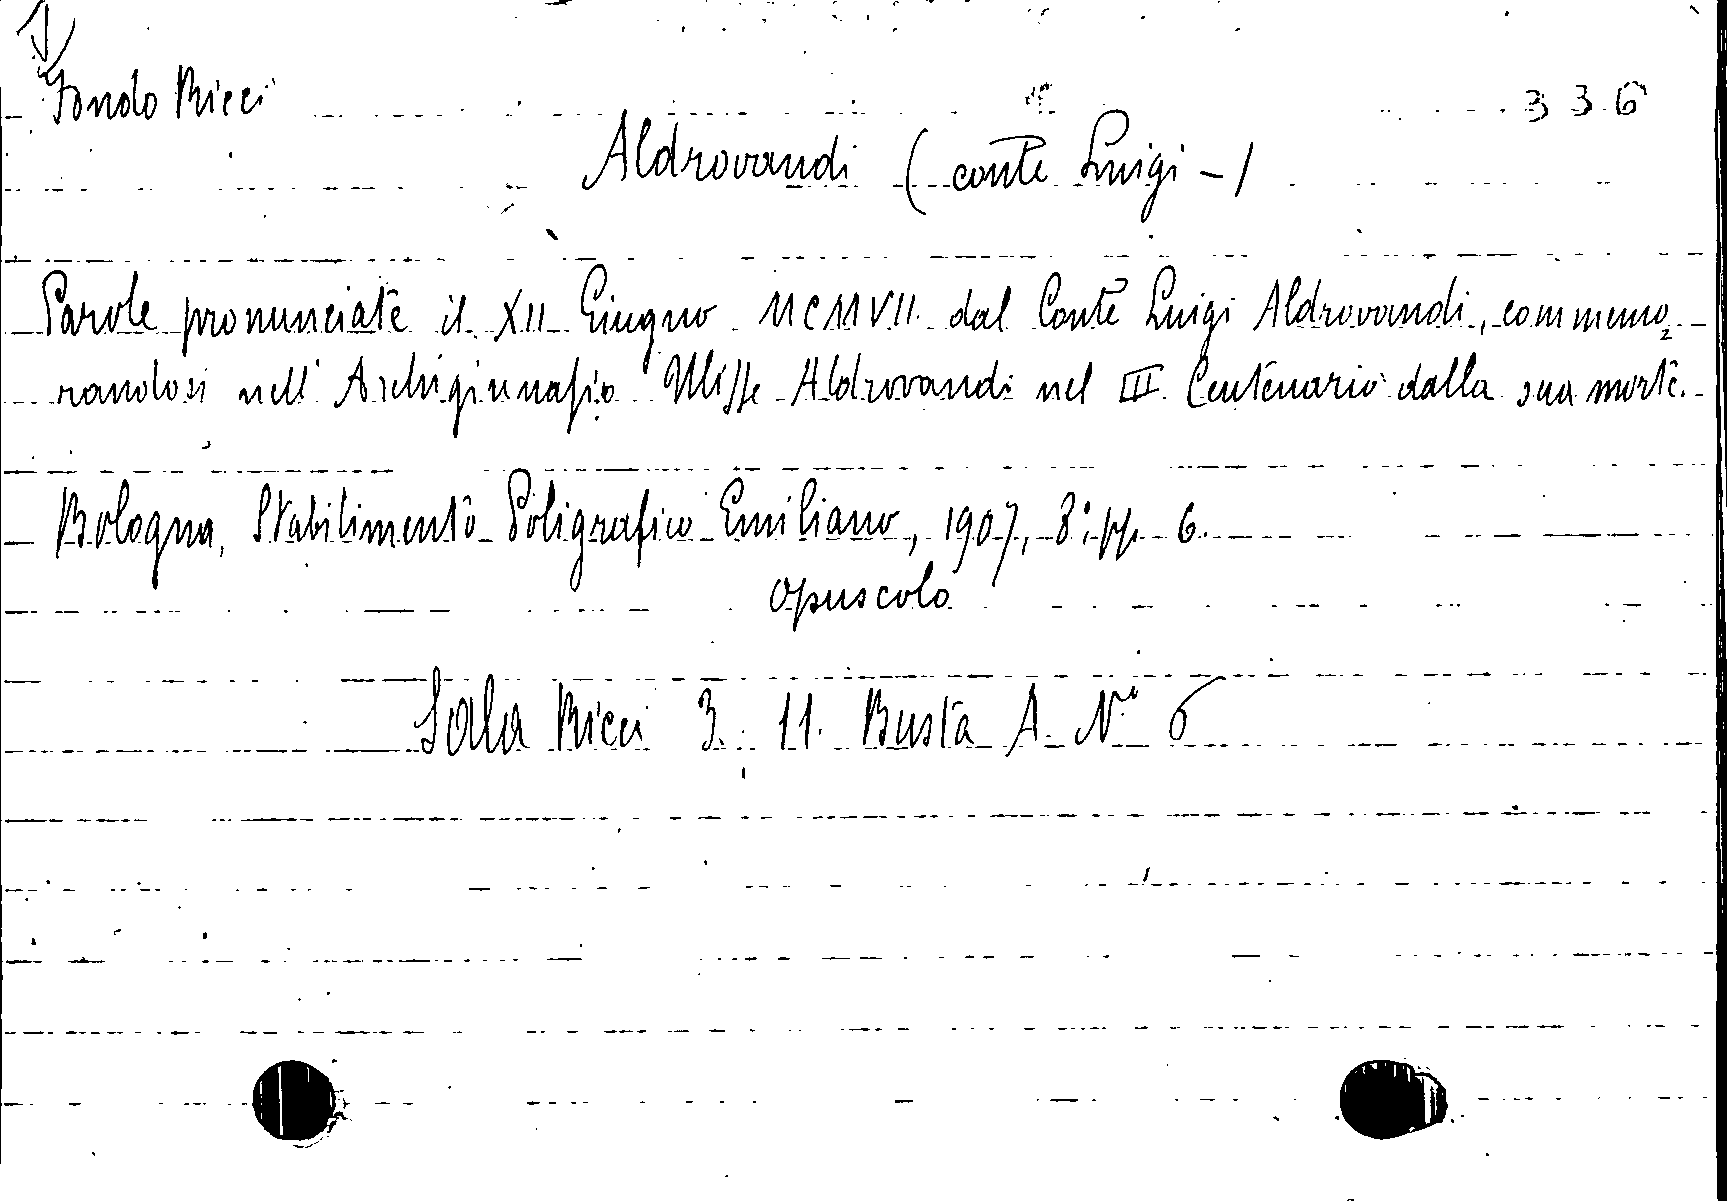 Fondo Ricci
336
Aldrovandi (conte Luigi -)
Parole pronunciate il XII Giugno MCMVII dal Conte Luigi Aldrovandi, commemo=
randosi nell'Archiginnasio Ulisse Aldrovandi nel III Centenario dalla sua morte.
Bologna, Stabilimento Poligrafico Emiliano, 1907, 8°, pp. 6.
opuscolo
Sala Ricci 3. 11. Busta A. N° 6